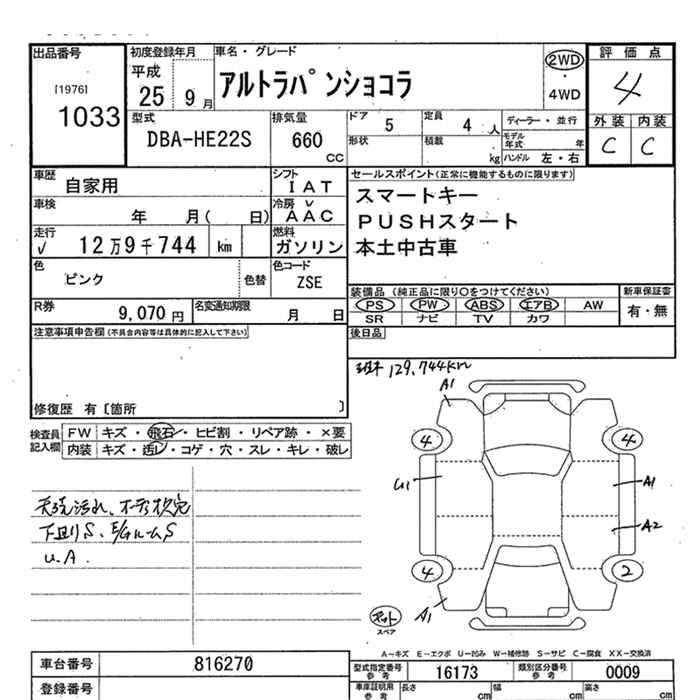 出品番号
[1976]
1033
初度登録年月
平成
25 9月
車名・グレード
アルトラパンショコラ
2WD
・
4WD
評価点
4
外装 内装
C C
型式
DBA-HE22S
排気量
660
CC
ドア
5
定員
4人
形状
積載
kg
ディーラー・並行
モデル年式 年
ハンドル 左・右
車歴
自家用
シフト
IAT
車検
年 月( 日)
冷房
AAC
走行
12万9千744 km
燃料
ガソリン
色
ピンク
色替
色コード
ZSE
R券
9,070円
名変通知期限
月 日
セールスポイント(正常に機能するものに限ります)
スマートキー
PUSHスタート
本土中古車
装備品(純正品に限り○をつけてください)
PS PW ABS エアB AW
SR ナビ TV カワ
新車保証書
有・無
後日品
注意事項申告欄(不具合内容等は具体的に記入して下さい)
修復歴 有〔箇所 〕
検査員記入欄
FW キズ・飛石・ヒビ割・リペア跡・×要
内装 キズ・汚レ・コゲ・穴・スレ・キレ・破レ
129,744km
A1
4 4
U1 A1
A2
4 2
A1
スペア
下回りS、E/GルームS
U.A.
A-キズ E-エクボ U-凹み W-補修跡 S-サビ C-腐食 XX-交換済
車台番号 816270
登録番号
型式指定番号 参考 16173
類別区分番号 参考 0009
車庫証明用 参考 長さ cm 幅 cm 高さ cm